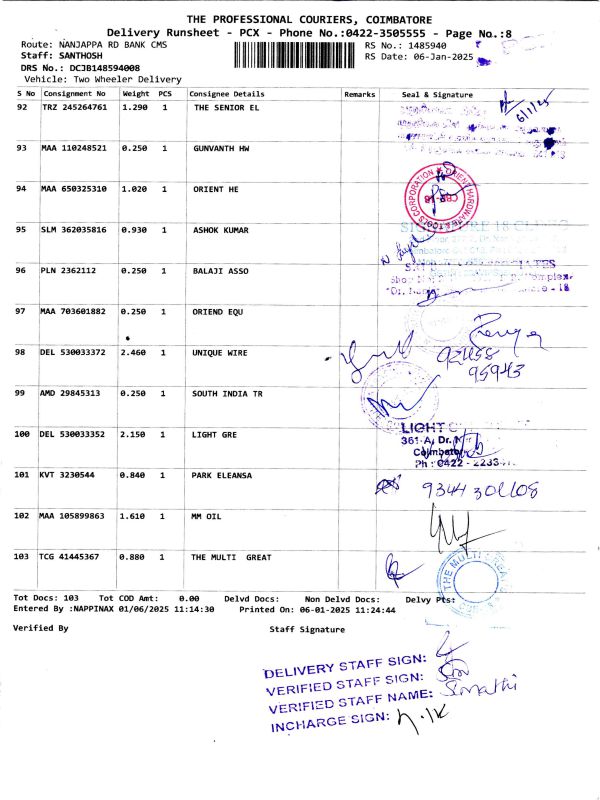 THE PROFESSIONAL COURIERS, COIMBATORE
Delivery Runsheet - PCX - Phone No.:0422-3505555 - Page No.:8
Route: NANJAPPA RD BANK CMS RS No.: 1485940
Staff: SANTHOSH RS Date: 06-Jan-2025
DRS No.: DCJB148594008
Vehicle: Two Wheeler Delivery
S No Consignment No Weight PCS Consignee Details Remarks Seal & Signature
92 TRZ 245264761 1.290 1 THE SENIOR EL
6/1/25
93 MAA 110248521 0.250 1 GUNVANTH HW
94 MAA 650325310 1.020 1 ORIENT HE
95 SLM 362035816 0.930 1 ASHOK KUMAR
96 PLN 2362112 0.250 1 BALAJI ASSO
97 MAA 703601882 0.250 1 ORIEND EQU
98 DEL 530033372 2.460 1 UNIQUE WIRE
95943
99 AMD 29845313 0.250 1 SOUTH INDIA TR
100 DEL 530033352 2.150 1 LIGHT GRE
LIGHT
361-A, Dr.
Coimbator
Ph : 0422 - 2233
101 KVT 3230544 0.840 1 PARK ELEANSA
102 MAA 105899863 1.610 1 MM OIL
103 TCG 41445367 0.880 1 THE MULTI GREAT
Tot Docs: 103 Tot COD Amt: 0.00 Delvd Docs: Non Delvd Docs: Delvy Pts:
Entered By :NAPPINAX 01/06/2025 11:14:30 Printed On: 06-01-2025 11:24:44
Verified By Staff Signature
DELIVERY STAFF SIGN:
VERIFIED STAFF SIGN:
VERIFIED STAFF NAME:
INCHARGE SIGN: